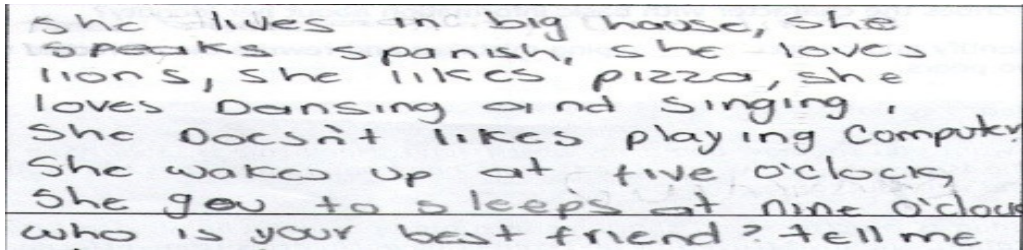 she lives in big house, she
speaks spanish, she loves
lions, she likes pizza, she
loves Dansing and singing,
She Doesn't likes playing Computer
She wakes up at five o'clock,
She gou to sleeps at nine o'clock
who is your best friend? tell me